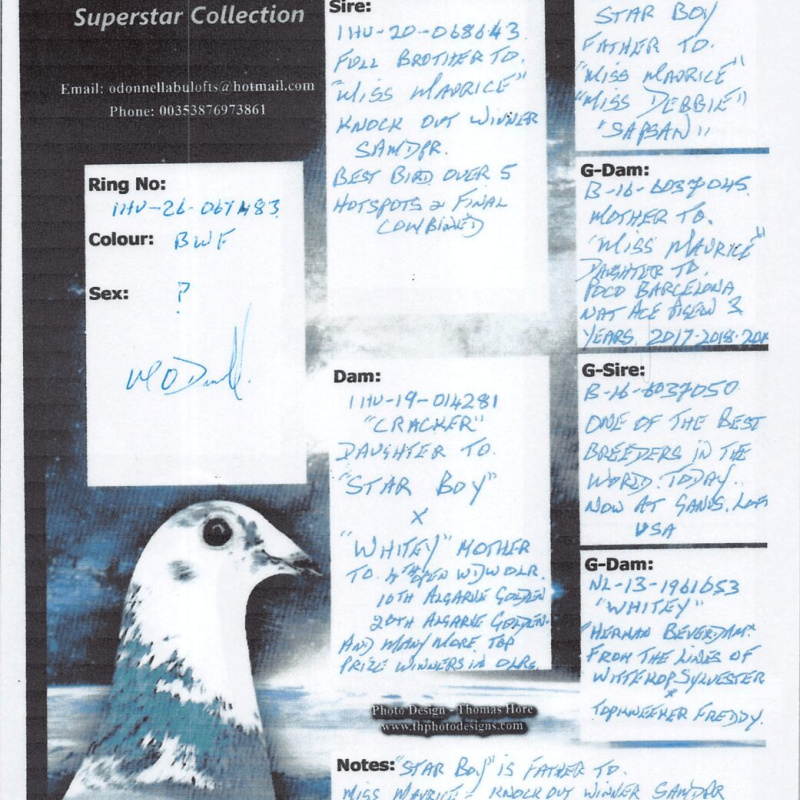 Superstar Collection
Email: odonnellabulofts@hotmail.com
Phone: 00353876973861
Ring No:
IHU-26-067483
Colour: BWF
Sex: ?
Sire:
IHU-20-068643
FULL BROTHER TO.
"MISS MAURICE"
KNOCK OUT WINNER
SAMDPR.
BEST BIRD OVER 5
HOTSPOTS & FINAL
COMBINED
Dam:
IHU-19-014281
"CRACKER"
DAUGHTER TO.
"STAR BOY"
X
"WHITEY" MOTHER
TO. 4TH OPEN WDWOLR.
10TH ALGARVE GOLDEN
20TH ALGARVE GOLDEN.
AND MANY MORE TOP
PRIZE WINNERS IN OLRS.
STAR BOY
FATHER TO.
"MISS MAURICE"
"MISS DEBBIE"
"SAPSAN"
G-Dam:
B-16-6037045
MOTHER TO.
"MISS MAURICE"
DAUGHTER TO.
POCO BARCELONA
NAT ACE PIGEON 3
YEARS. 2017-2018-201
G-Sire:
B-16-6037050
ONE OF THE BEST
BREEDERS IN THE
WORLD TODAY.
NOW AT GANUS. LOFT
USA
G-Dam:
NL-13-1961053
"WHITEY"
"HERMAN BEVERDAM.
FROM THE LINES OF
WITTEKOP SYLVESTER
X
TOPKWEEKER FREDDY.
Photo Design - Thomas Hore
www.thphotodesigns.com
Notes: "STAR BOY" IS FATHER TO.
MISS MAURICE - KNOCK OUT WINNER SAMDPR